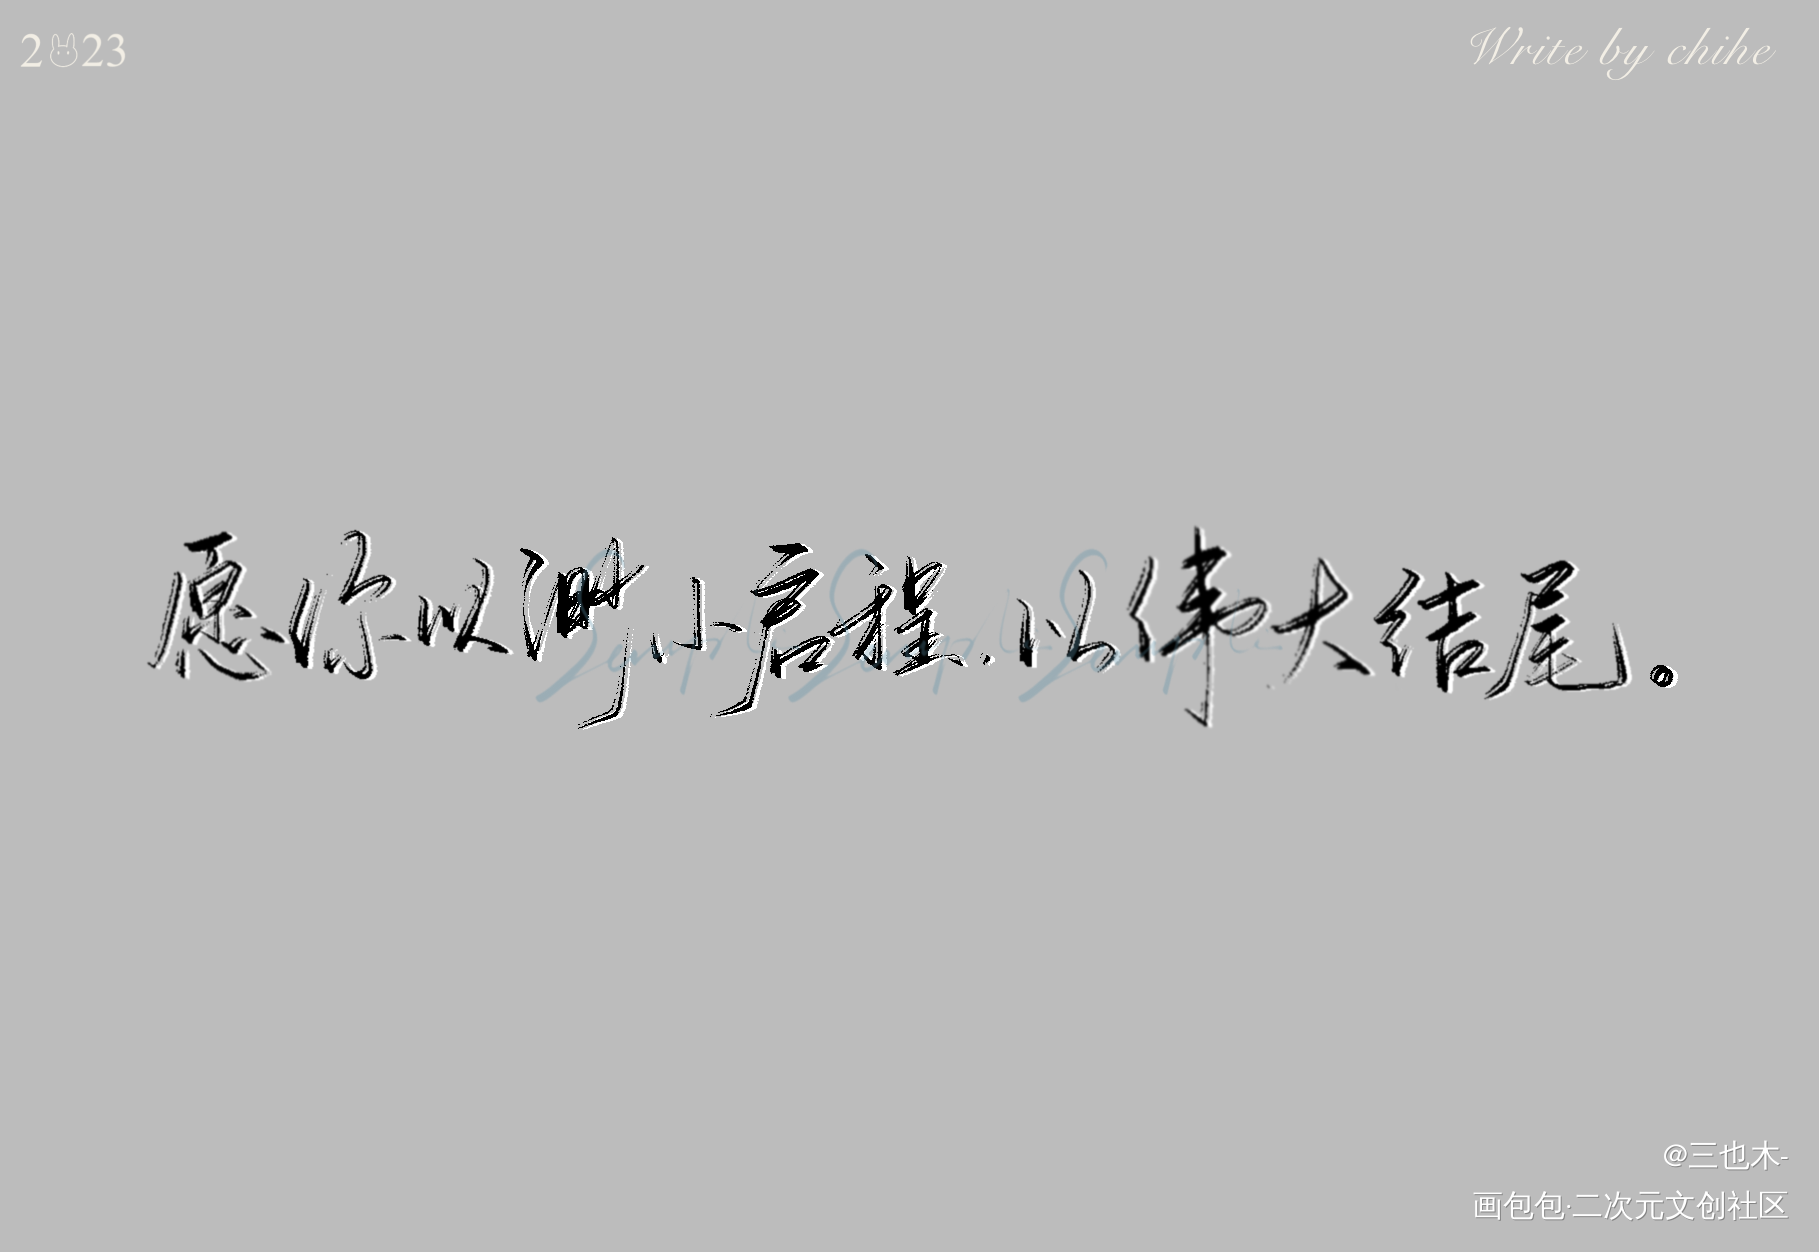 2023
Write by chihe
愿你以渺小启程,以伟大结尾。
@三也木-
画包包·二次元文创社区